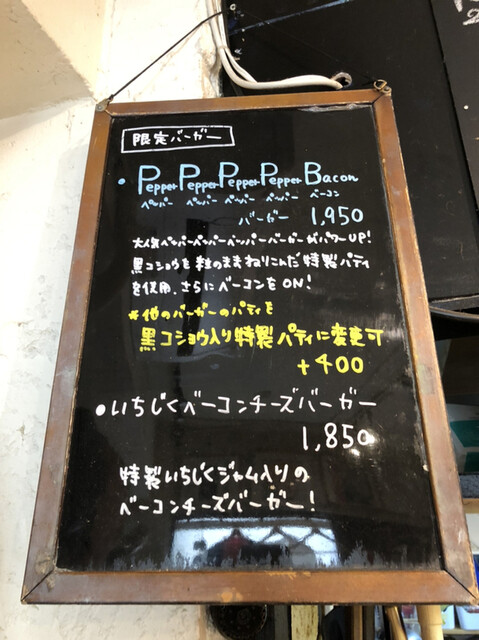 限定バーガー
• Pepper Pepper Pepper Pepper Bacon
ペッパー ペッパー ペッパー ペッパー ベーコン
バーガー 1,950
大人気ペッパーペッパーペッパーバーガーがパワーUP!
黒コショウを粒のままねりこんだ特製パティ
を使用、さらにベーコンをON!
*他のバーガーのパティを
黒コショウ入り特製パティに変更可
+400
• いちじくベーコンチーズバーガー
1,850
特製いちじくジャム入りの
ベーコンチーズバーガー!